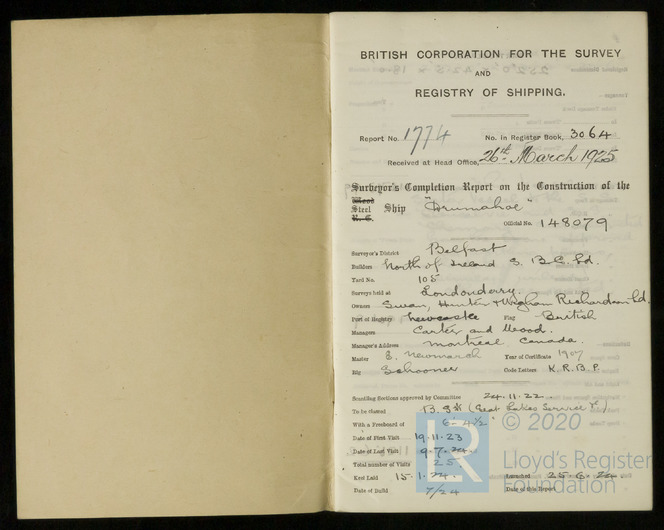 BRITISH CORPORATION FOR THE SURVEY
AND
REGISTRY OF SHIPPING.
Report No. 1774 No. in Register Book, 3064
Received at Head Office, 26th March 1925
Surveyor's Completion Report on the Construction of the
Wood
Steel Ship "Drumahoe"
R. C.
Official No. 148079
Surveyor's District Belfast
Builders North of Ireland S. B. C. Ld.
Yard No. 105
Surveys held at Londonderry.
Owners Swan, Hunter & Wigham Richardson Ld.
Port of Registry Newcastle Flag British
Managers Carter and Wood.
Manager's Address Montreal Canada.
Master E. Newmarch Year of Certificate 1907
Rig Schooner Code Letters K. R. B. P.
Scantling Sections approved by Committee 24.11.22.
To be classed B. S* (Great Lakes Service)
With a Freeboard of 6'-4½"
Date of First Visit 19.11.23
Date of Last Visit 9.7.24.
Total number of Visits 25
Keel Laid 15.1.24. Launched 25.6.24
Date of Build 7/24 Date of this Report
LR © 2020
Lloyd's Register
Foundation